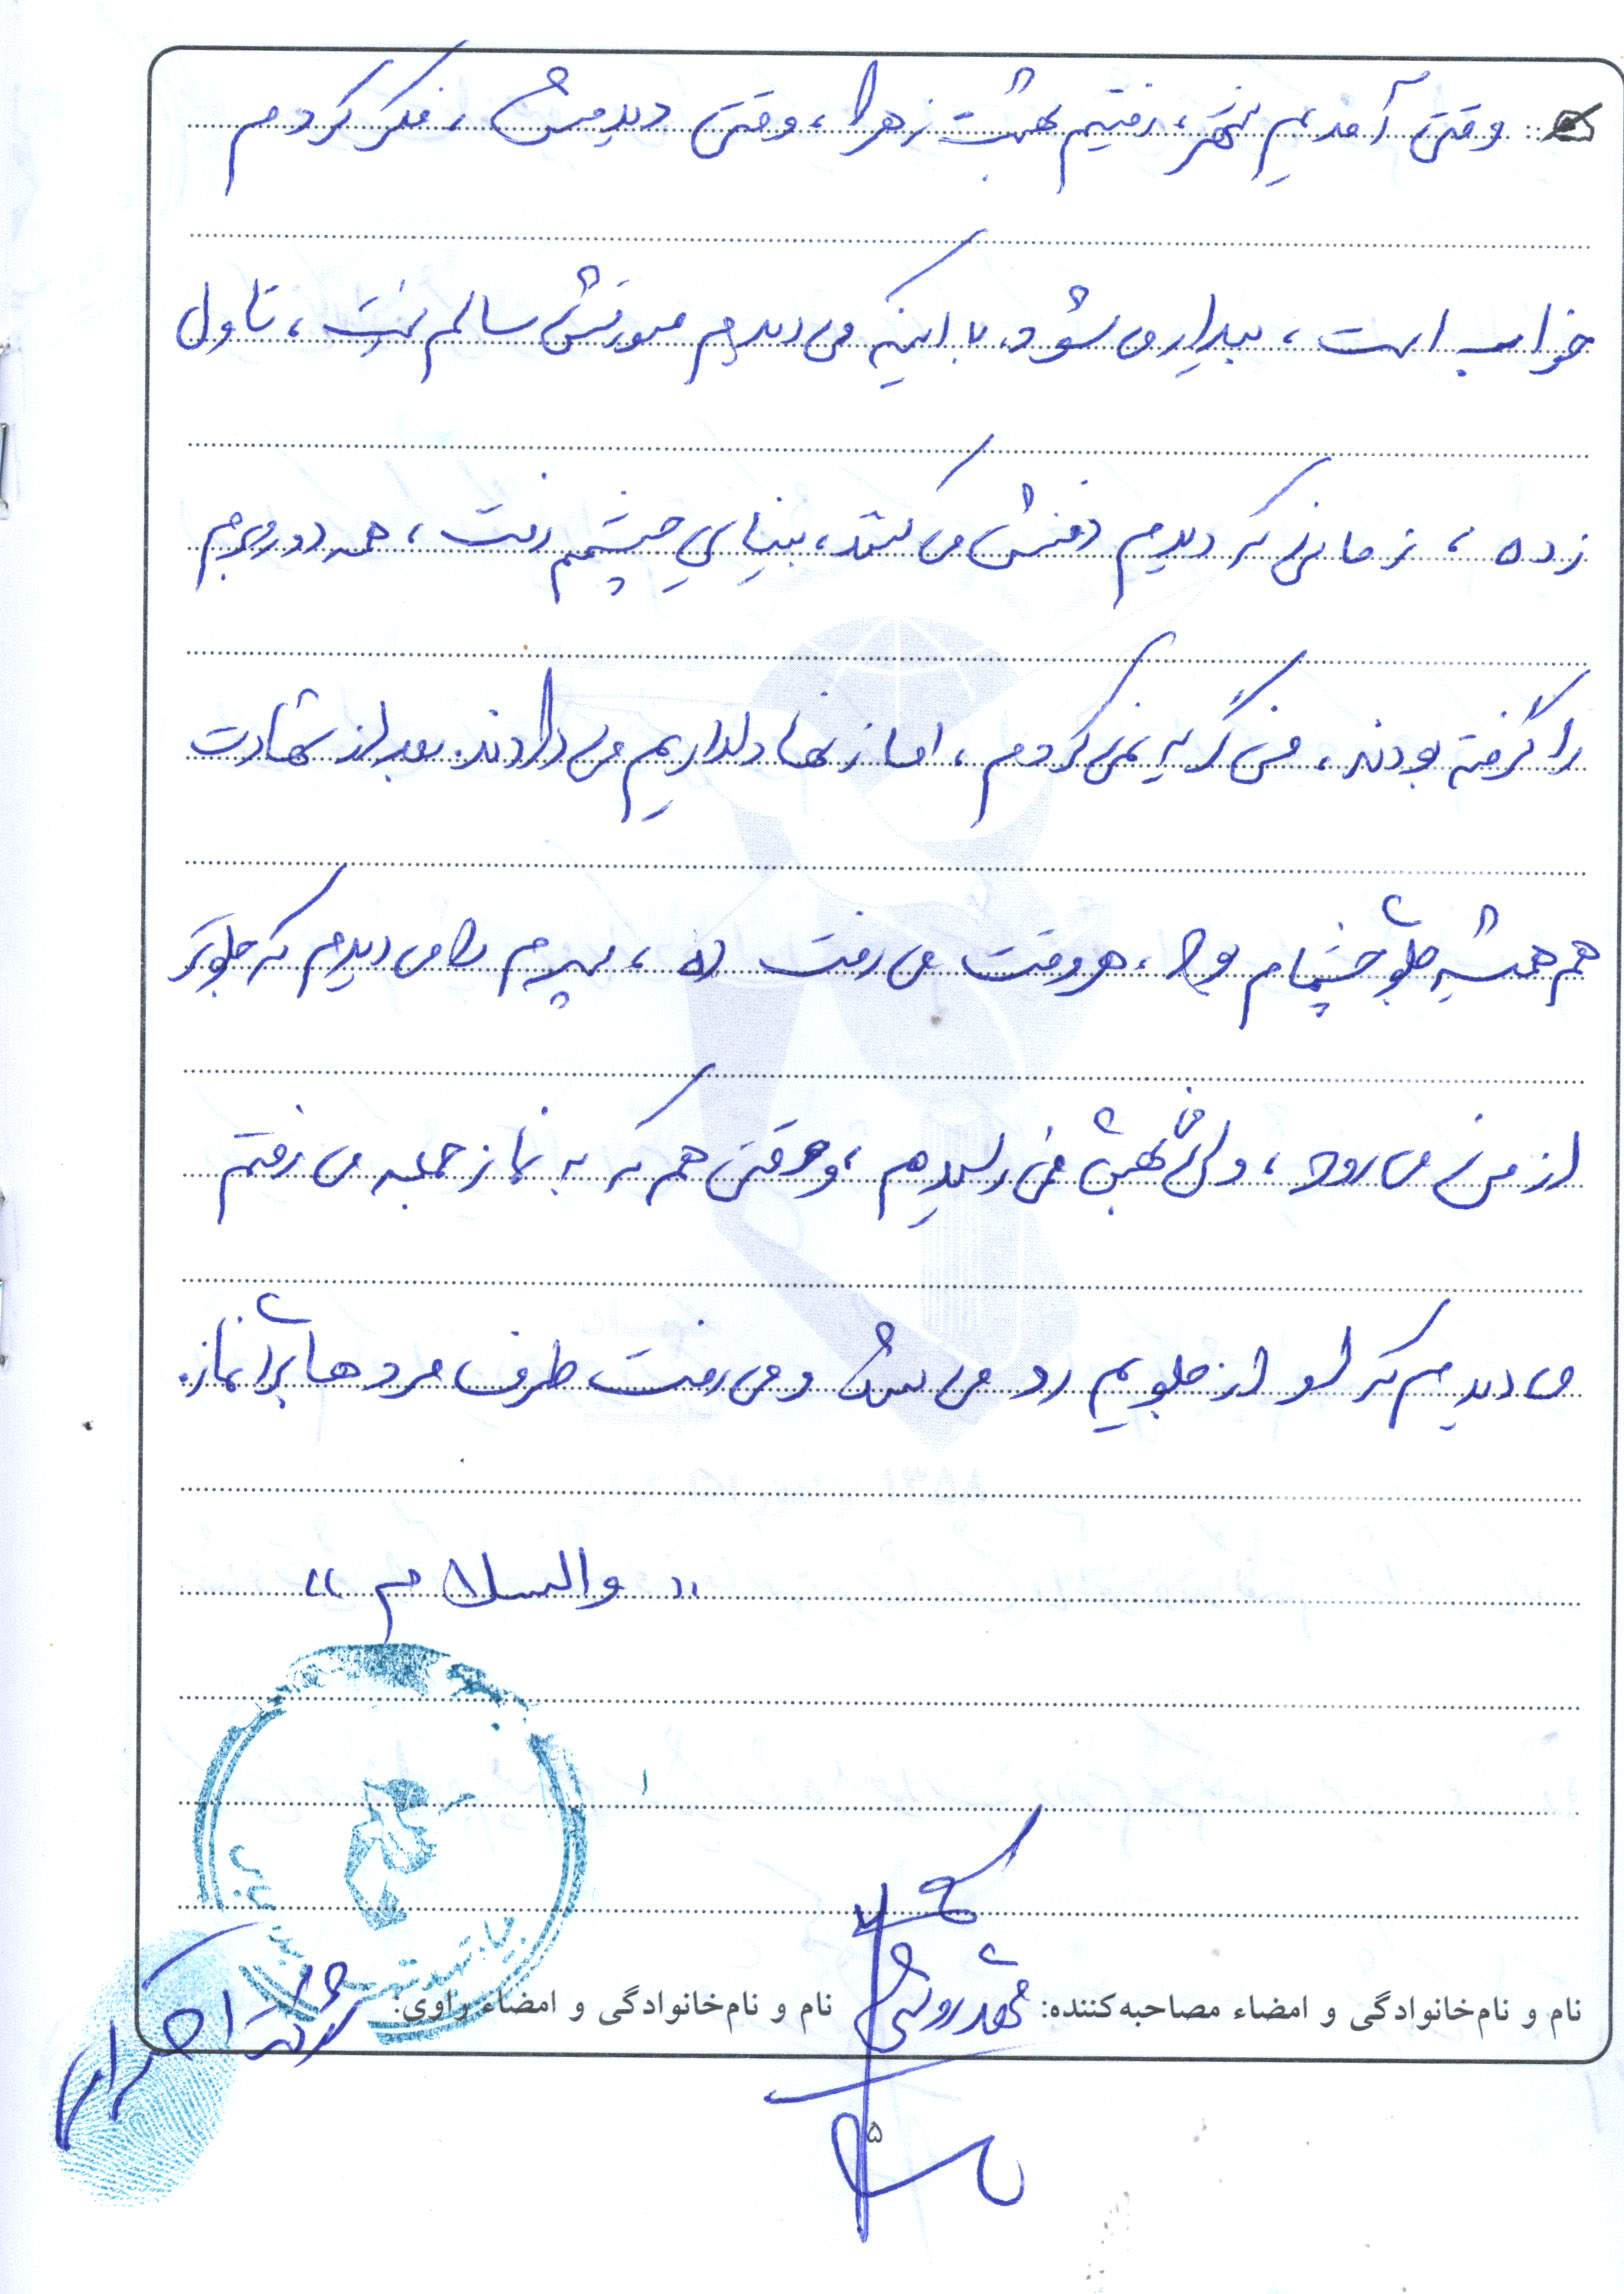 وقتی آمدیم شهر، رفتیم بهشت زهرا، وقتی دیدمش، فکر کردم
خواب است، بیدار می شود. با اینکه می دیدم صورتش سالم نیست، تاول
زده، زمانی که دیدم دفنش می کنند، بینایی چشمم رفت، همه دورم
را گرفته بودند، من گریه نمی کردم، اما زنها دلداریم می دادند. بعد از شهادت
هم همیشه جلو چشمام بود، هر وقت می رفت راه، پسرم را می دیدم که جلوتر
از من می رود، ولی بهش نمی رسیدم، وقتی هم که به نماز جمعه می رفتم
می دیدم که او از جلویم رد می شد و می رفت طرف مردها برای نماز.
«والسلام»
نام و نام‌خانوادگی و امضاء مصاحبه‌کننده: نام و نام‌خانوادگی و امضاء راوی:
۵